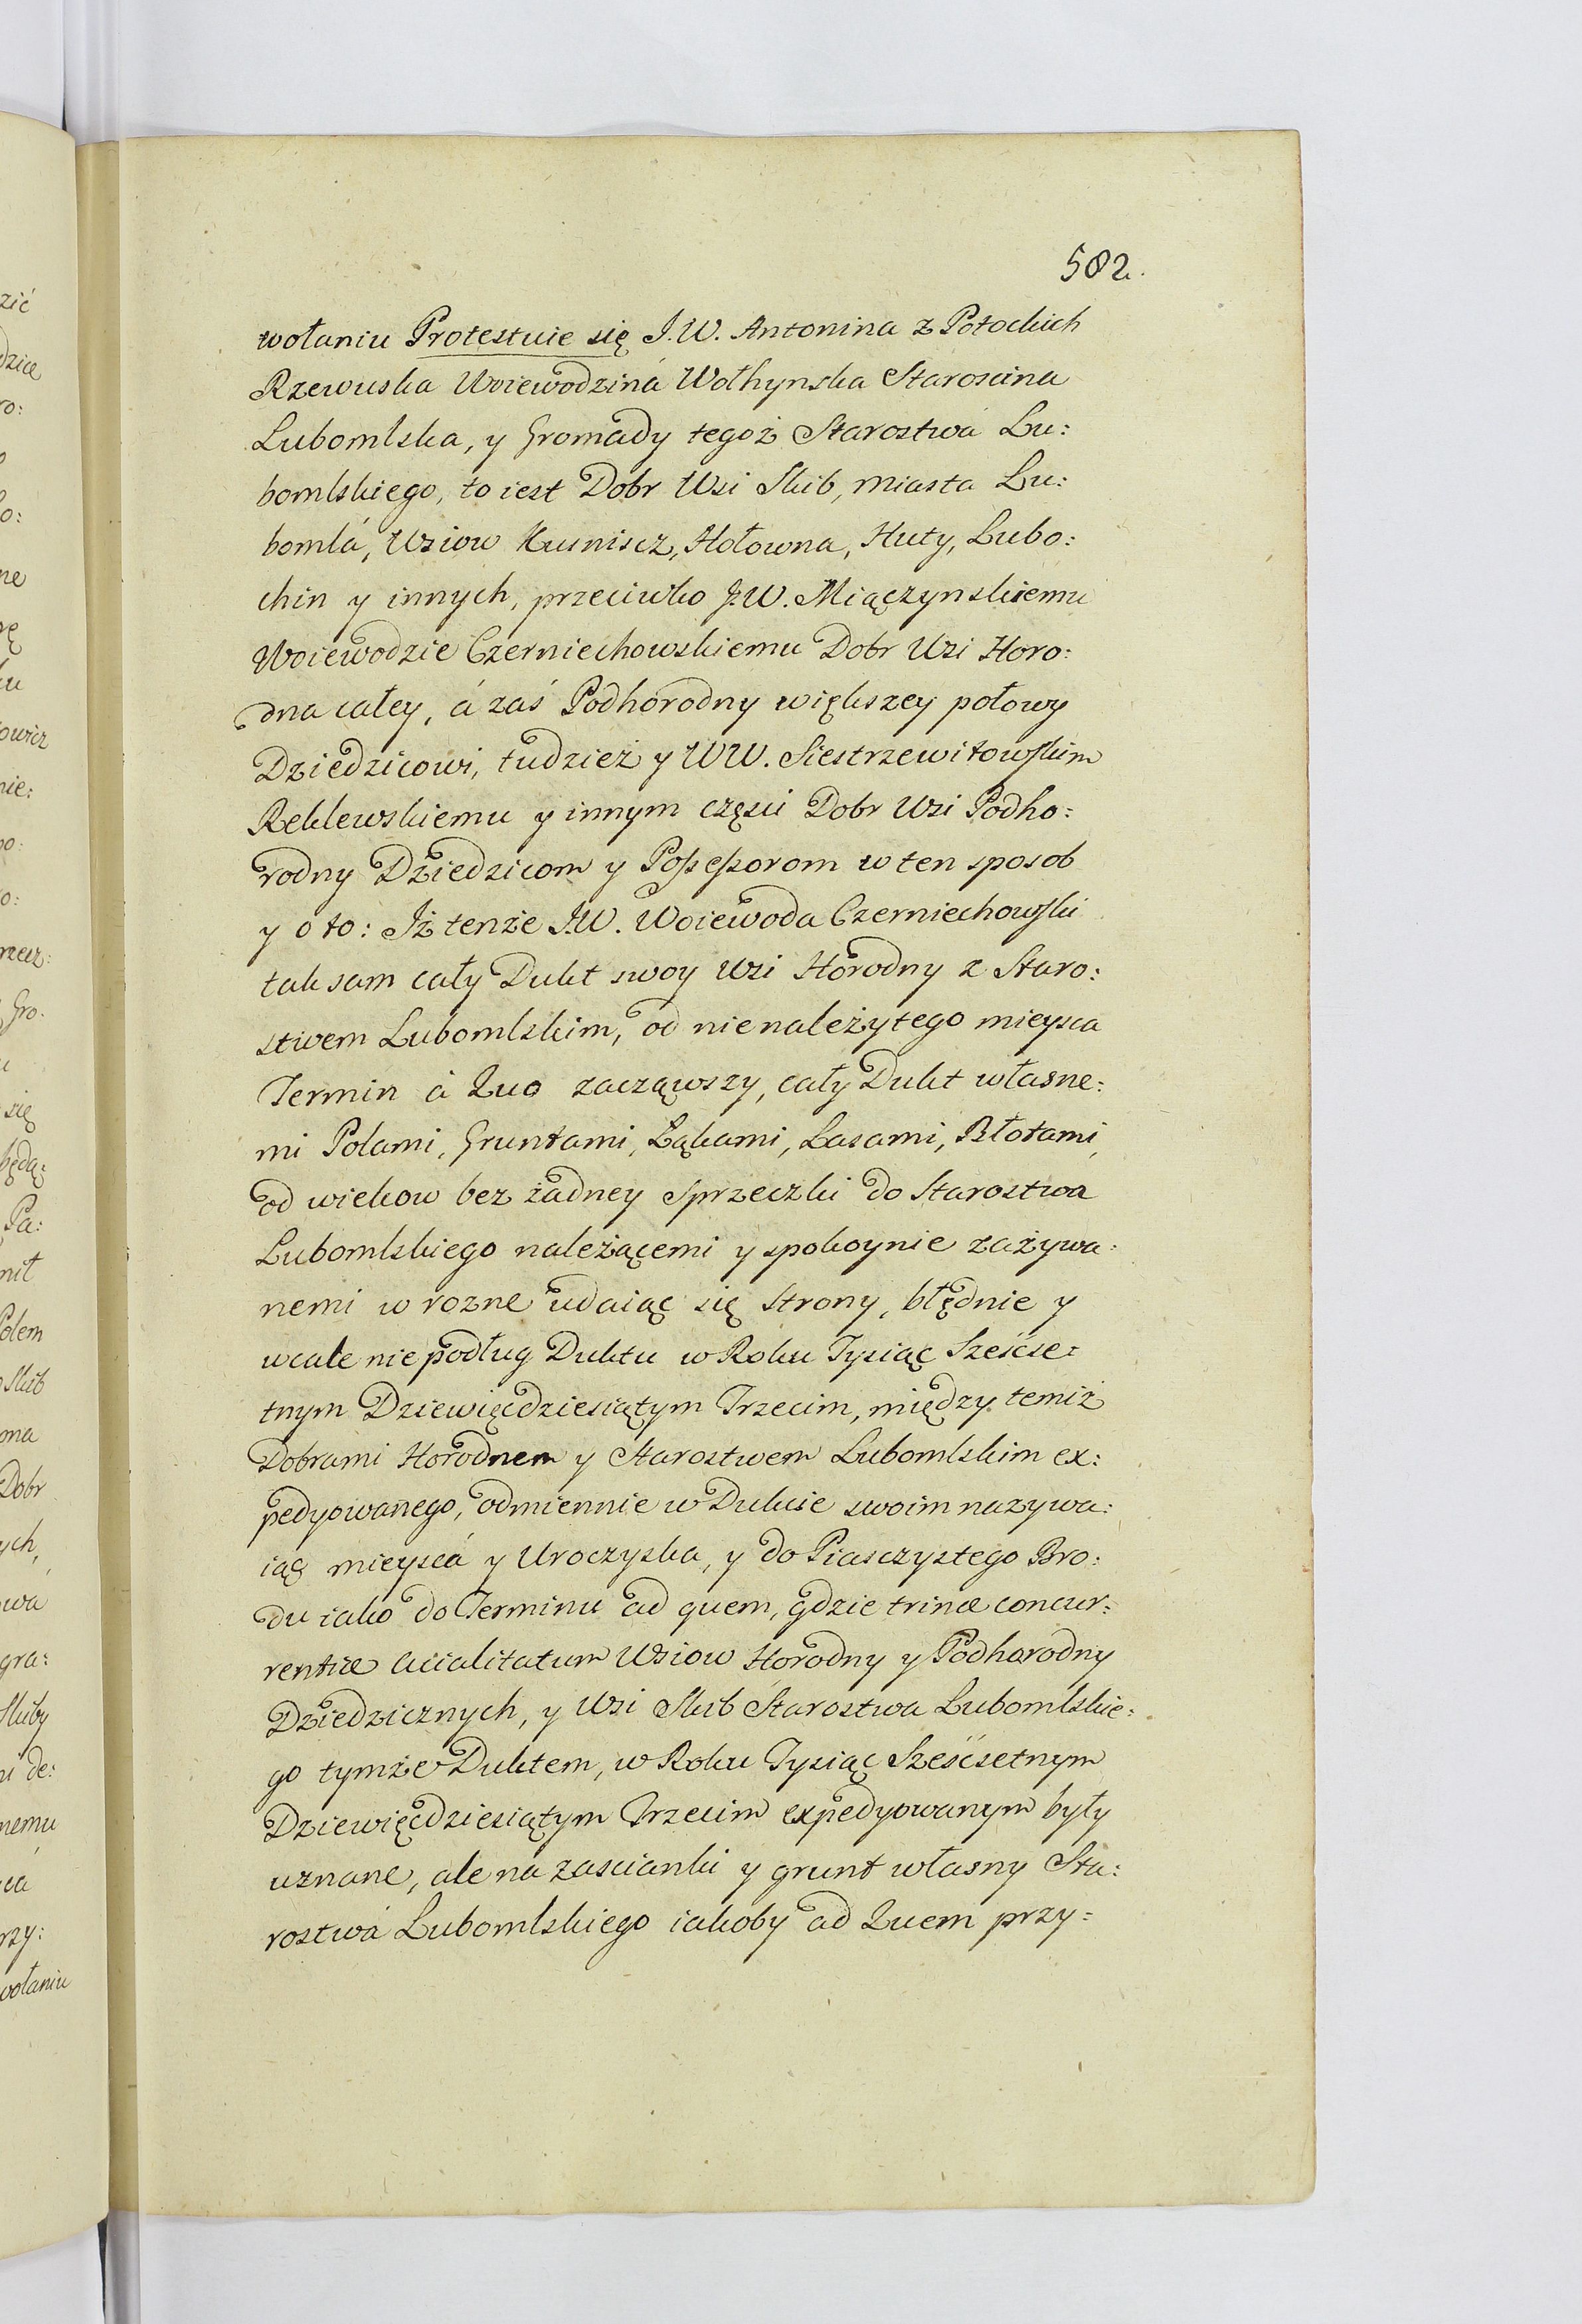 582.
wołaniu Protestuie się J.W. Antonina z Potockich
Rzewuska Woiewodziná Wołhynska Staroscina
Lubomlska, y Gromady tegoż Starostwá Lu:
bomlskiego, to iest Dobr Wsi Skib, miasta Lu:
bomlá, Wsiow Kusniscz, Hołowna, Huty, Lubo:
chin y innych, przeciwko J.W. Miączynskiemu
Woiewodzie Czerniechowskiemu Dobr Wsi Horo:
dna całey, á zaś Podhorodny większey połowy
Dziedzicowi, tudzież y WW. Siestrzewitowskim
Reklewskiemu y innym częsci Dobr Wsi Podho:
rodny Dziedzicom y Possessorom w ten sposob
y o to: Jż tenże J.W. Woiewoda Czerniechowski
tak sam cały Dukt swoy Wsi Horodny z Staro:
stwem Lubomlskim, od nienależytego mieysca
Termin á Quo zacząwszy, cały Dukt własne:
mi Polami, Gruntami, Łąkami, Lasami, Błotami,
od wiekow bez żadney sprzeczki do Starostwa
Lubomlskiego należącemi y spokoynie zażywa:
nemi w rozne udaiąc się strony, błędnie y
wcale nie podług Duktu w Roku Tysiąc Sześcse:
tnym Dziewięcdziesiątym Trzecim, między temiż
Dobrami Horodnem y Starostwem Lubomlskim ex:
pedyowanego, odmiennie w Dukcie swoim nazywa:
iąc mieyscá y Uroczyska, y do Piasczystego Bro:
du iako do Terminu ad quem, gdzie trinæ concur:
rentiæ Acialitatum Wsiow Horodny y Podhorodny
Dziedzicznych, y Wsi Skib Starostwa Lubomlskie:
go tymże Duktem, w Roku Tysiąc Sześcsetnym
Dziewięcdziesiątym Trzecim expedyowanym były
uznane, ale na zascianki y grunt własny Sta:
rostwá Lubomlskiego iakoby ad Quem przy: